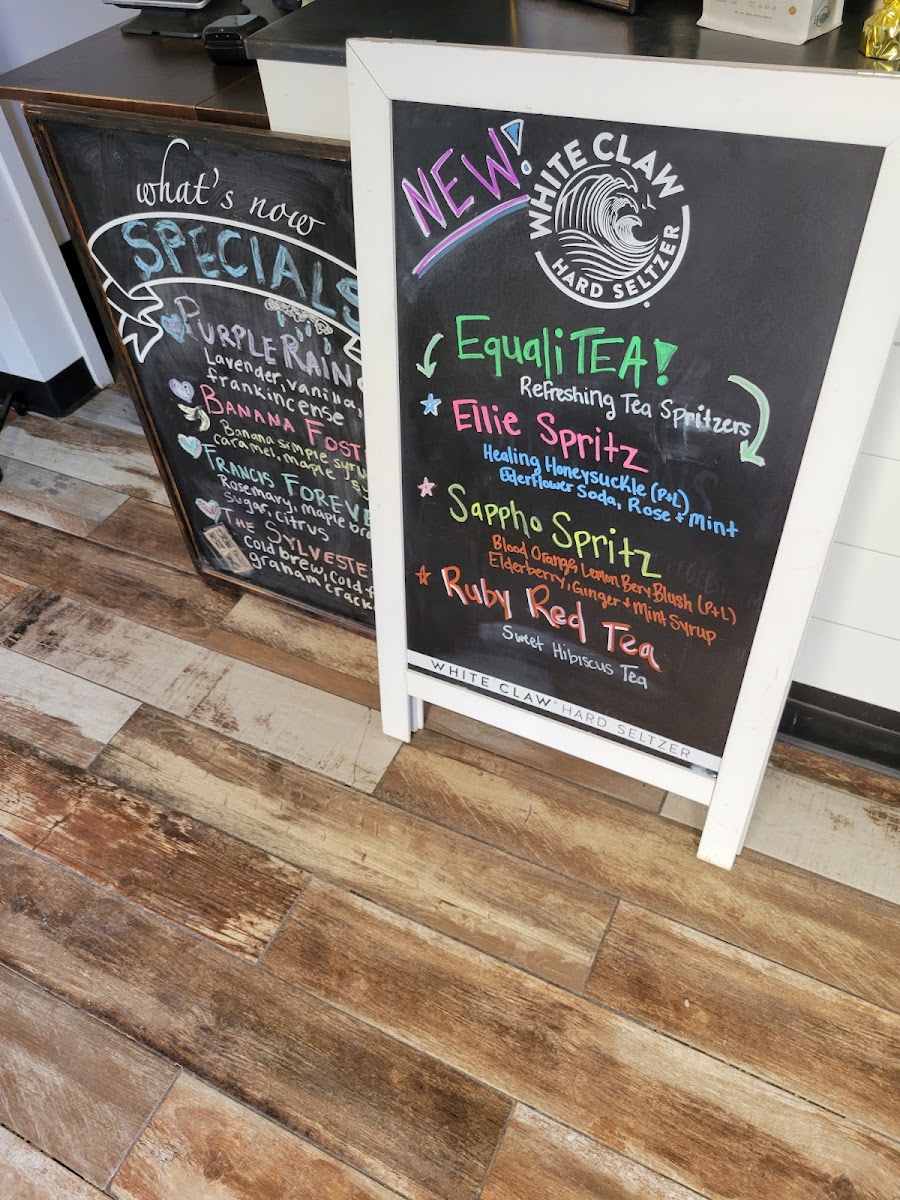 what's now
SPECIALS
PURPLE RAIN
Lavender, vanilla,
frankincense
BANANA FOST
Banana simple syru
caramel, maple sy
FRANCIS FOREVE
Rosemary, maple bro
sugar, citrus
THE SYLVESTE
cold brew, cold f
graham crack
NEW!
WHITE CLAW
HARD SELTZER
EqualiTEA!
Refreshing Tea Spritzers
Ellie Spritz
Healing Honeysuckle (P+L)
Elderflower Soda, Rose + Mint
Sappho Spritz
Blood Orange, Lemon Bery Blush (P+L)
Elderberry, Ginger + Mint Syrup
Ruby Red Tea
Sweet Hibiscus Tea
WHITE CLAW HARD SELTZER